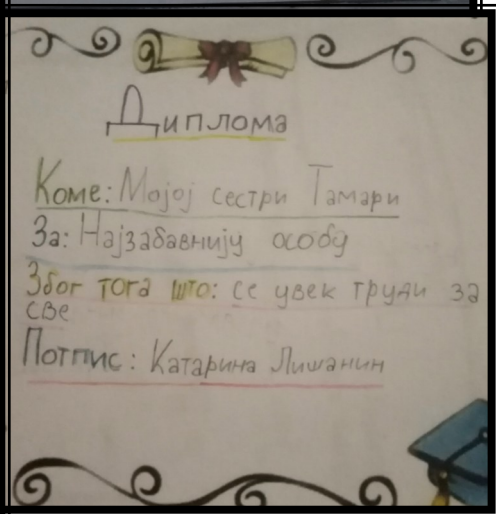 Диплома
Коме: Мојој сестри Тамари
За: Најзабавнију особу
Због тога што: се увек труди за
све
Потпис: Катарина Лишанин